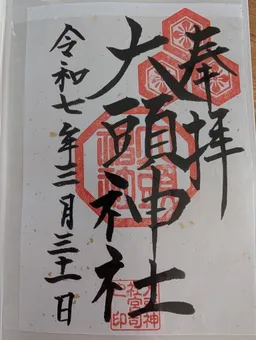 奉拝
大頭神社
令和七年三月三十一日